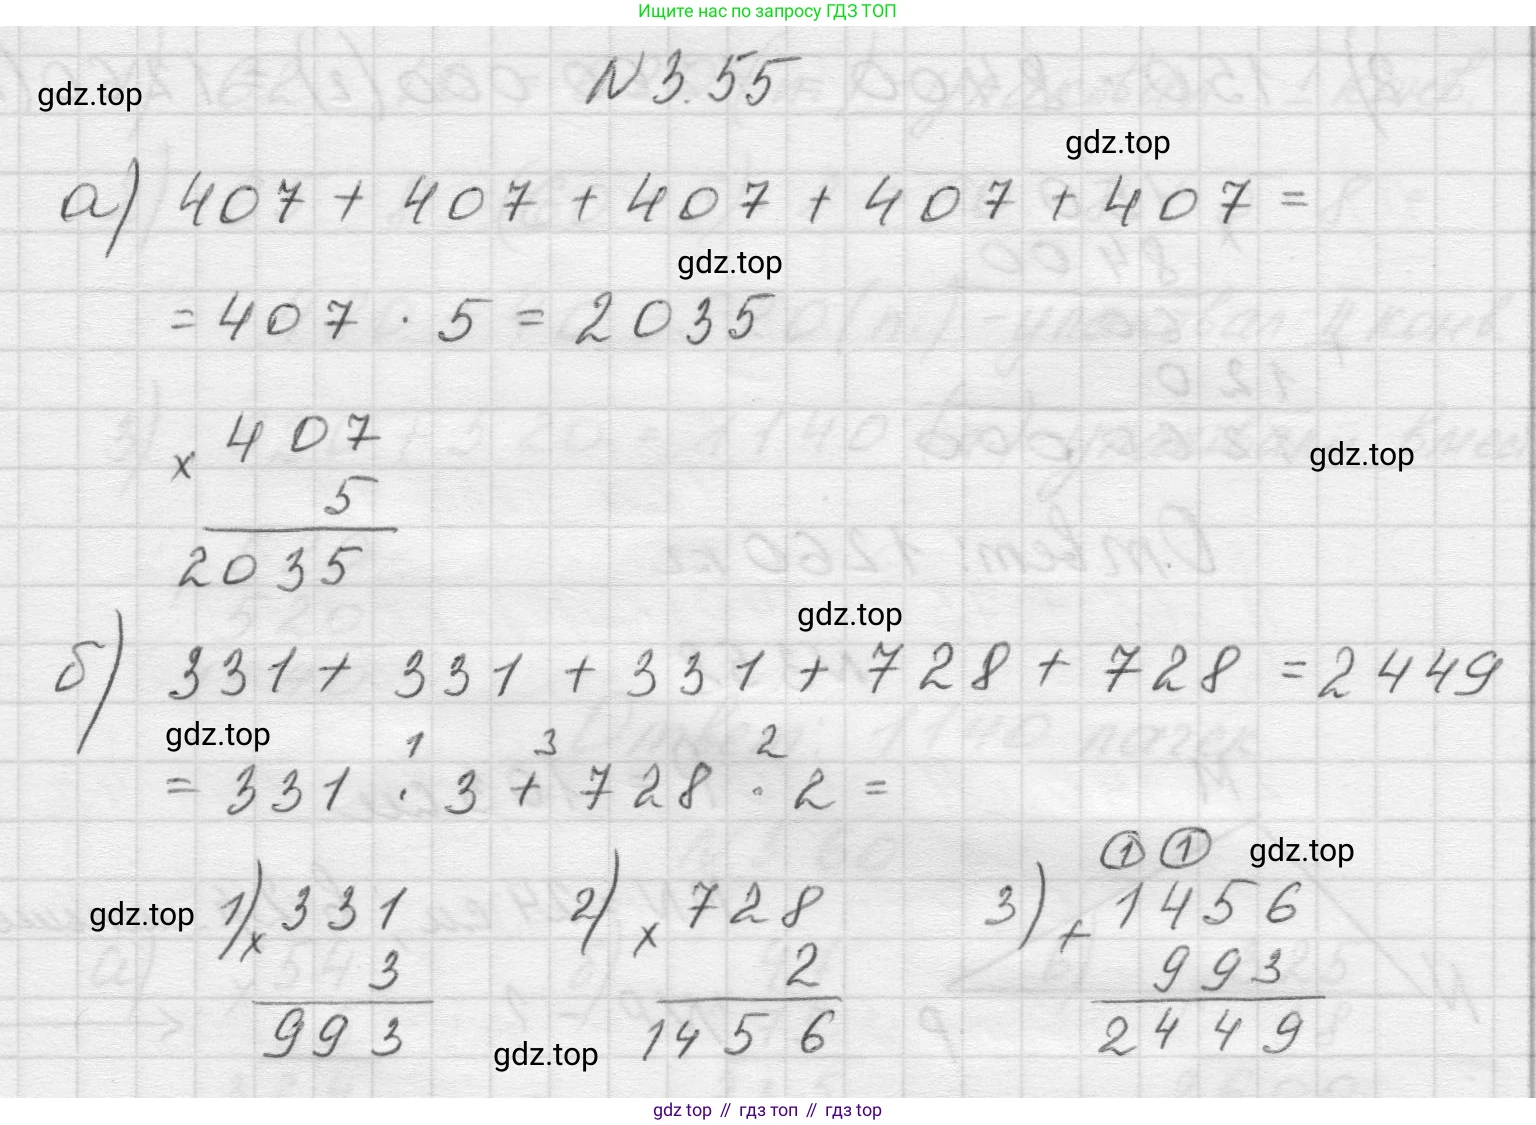 Ищите нас по запросу ГДЗ ТОП
N 3.55
gdz.top
gdz.top
а) 407 + 407 + 407 + 407 + 407 =
gdz.top
= 407 · 5 = 2035
× 407
gdz.top
5
2035
gdz.top
б) 331 + 331 + 331 + 728 + 728 = 2449
gdz.top
1 3 2
= 331 · 3 + 728 · 2 =
1 1 gdz.top
gdz.top 1) × 331 2) × 728 3) + 1456
3 2 993
993 1456 2449
gdz.top
gdz top // гдз топ // гдз top